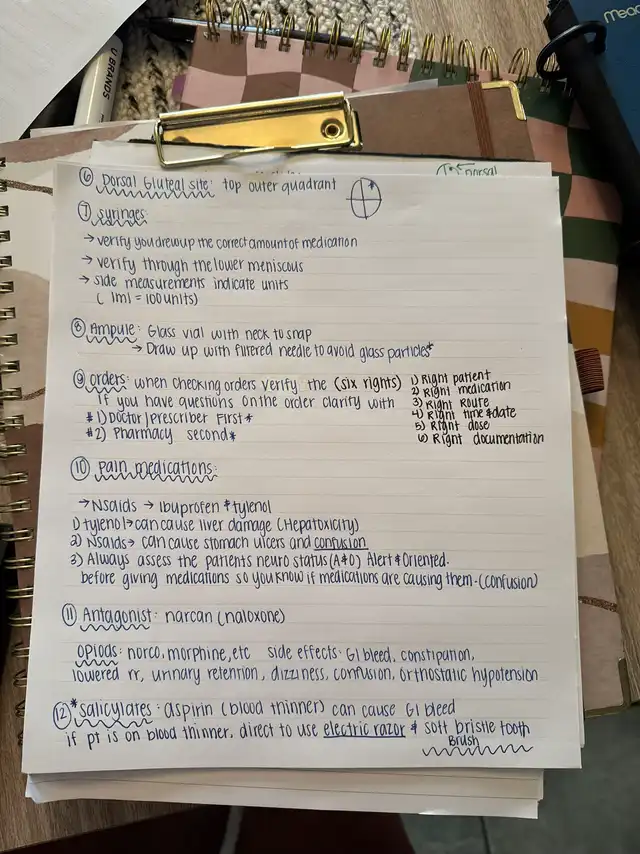 U BRANDS
Mea
dorsal
⑥ Dorsal Gluteal site: top outer quadrant
⑦ syringes:
→ verify you drew up the correct amount of medication
→ verify through the lower meniscous
→ side measurements indicate units
( 1ml = 100 units)
⑧ Ampule: Glass vial with neck to snap
→ Draw up with filtered needle to avoid glass particles*
⑨ orders: when checking orders verify the (six rights)
If you have questions on the order clarify with
*1) Doctor/Prescriber First*
*2) Pharmacy second*
1) Right patient
2) Right medication
3) Right Route
4) Right time & date
5) Right dose
6) Right documentation
⑩ Pain medications:
→ Nsaids → Ibuprofen & tylenol
1) tylenol → can cause liver damage (Hepatoxicity)
2) Nsaids → can cause stomach ulcers and confusion
3) Always assess the patients neuro status (A&O) Alert & Oriented.
before giving medications so you know if medications are causing them - (confusion)
⑪ Antagonist: narcan (naloxone)
opiods: norco, morphine, etc side effects: GI bleed, constipation,
lowered rr, urinary retention, dizziness, confusion, orthostatic hypotension
⑫ *salicylates: aspirin (blood thinner) can cause GI bleed
if pt is on blood thinner, direct to use electric razor & soft bristle tooth
Brush